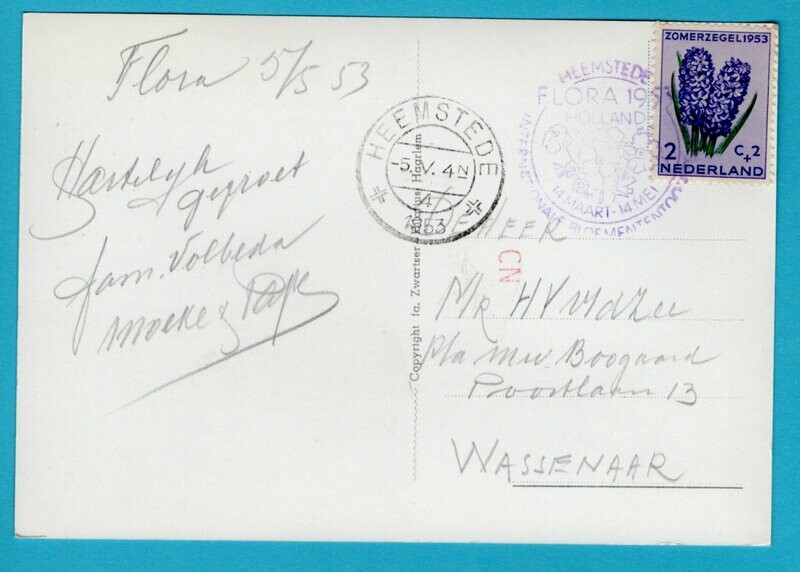 Flora 5/5 53
Hartelijk
gegroet
fam. Volbeda
Moeke & Pape
HEEMSTEDE
5.V.4N
4
1953
HEEMSTEDE
FLORA 1953
HOLLAND
14 MAART-14 MEI
INTERNATIONALE BLOEMENTENTOON
ZOMERZEGEL 1953
2 C+2
NEDERLAND
Copyright fa. Zwartser Haarlem
DE HEER
CN
Mr. H V vd Zee
p/a Mw. Boogaard
Poortlaan 13
WASSENAAR